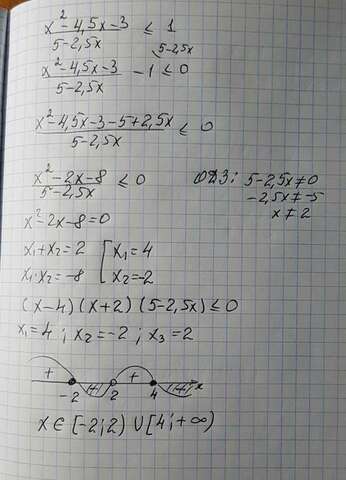 x² - 4,5x - 3 / 5 - 2,5x ≤ 1
x² - 4,5x - 3 / 5 - 2,5x - 1 ≤ 0 \ 5-2,5x
x² - 4,5x - 3 - 5 + 2,5x / 5 - 2,5x ≤ 0
x² - 2x - 8 / 5 - 2,5x ≤ 0
ОДЗ: 5 - 2,5x ≠ 0
-2,5x ≠ -5
x ≠ 2
x² - 2x - 8 = 0
x₁ + x₂ = 2 [ x₁ = 4
x₁ · x₂ = -8 [ x₂ = -2
(x - 4)(x + 2)(5 - 2,5x) ≤ 0
x₁ = 4 ; x₂ = -2 ; x₃ = 2
+ + x
-2 2 4
x ∈ [-2; 2) ∪ [4; +∞)